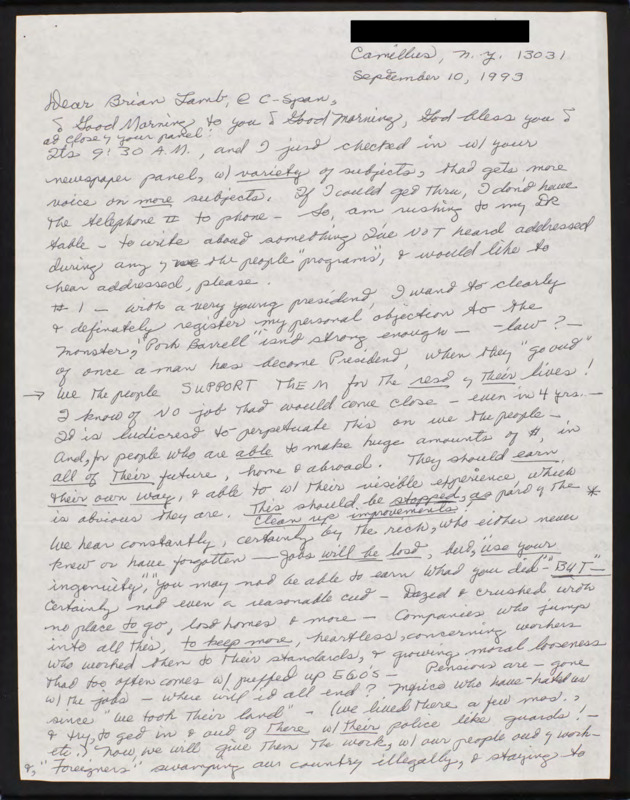 Camillus, N.Y. 13031
September 10, 1993
Dear Brian Lamb, @ C-Span,
& Good Morning to you & Good Morning, God bless you &
all of your panel!
Its 9:30 A.M., and I just checked in w/ your
newspaper panel, w/ variety of subjects, that gets more
voice on more subjects. If I could get thru, I don't have
the telephone # to phone - So, am rushing to my DR
table - to write about something I've NOT heard addressed
during any of the people "programs", & would like to
hear addressed, please.
#1 - with a very young president, I want to clearly
& definately register my personal objection to the
monster, "Pork Barrell" isn't strong enough - - law? -
of once a man has become President, when they "go out"
→ we the people SUPPORT THEM for the rest of their lives!
I know of NO job that would come close - even in 4 yrs. -
It is ludicrest to perpetuate this on we the people -
And, for people who are able to make huge amounts of $, in
all of their future, home & abroad. They should earn
their own way, & able to w/ their visible experience, which
is obvious they are. This should be stopped, as part of the *
clean up improvements!
We hear constantly, certainly by the rich, who either never
knew or have forgotten - Jobs will be lost, but, "use your
ingenuity", "you may not be able to earn what you did" - "BUT" -
Certainly not even a reasonable cut - Dazed & crushed with
no place to go, lost homes & more - Companies who jump
into all this, to keep more, heartless, concerning workers
who worked them to their standards, & growing moral looseness
that too often comes w/ puffed up EGO'S - Pensions are - gone
w/ the jobs - where will it all end? Mexico who have hated us
since "we took their land" - (we lived there a few mos.,
& try, to get in & out of there w/ their police like guards! -
etc.) now, we will give them the work, w/ our people out of work -
&, "Foreigners" swamping our country illegally, & staying to